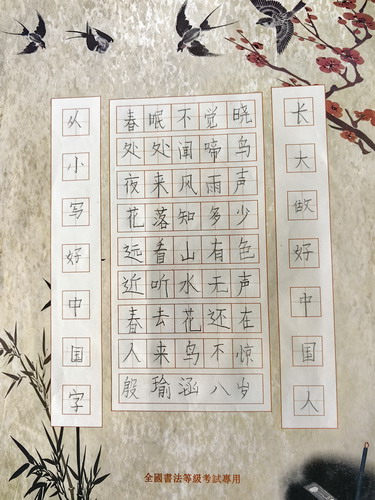 从小写好中国字
春眠不觉晓
处处闻啼鸟
夜来风雨声
花落知多少
远看山有色
近听水无声
春去花还在
人来鸟不惊
殷瑜涵八岁
长大做好中国人
全國書法等級考試專用